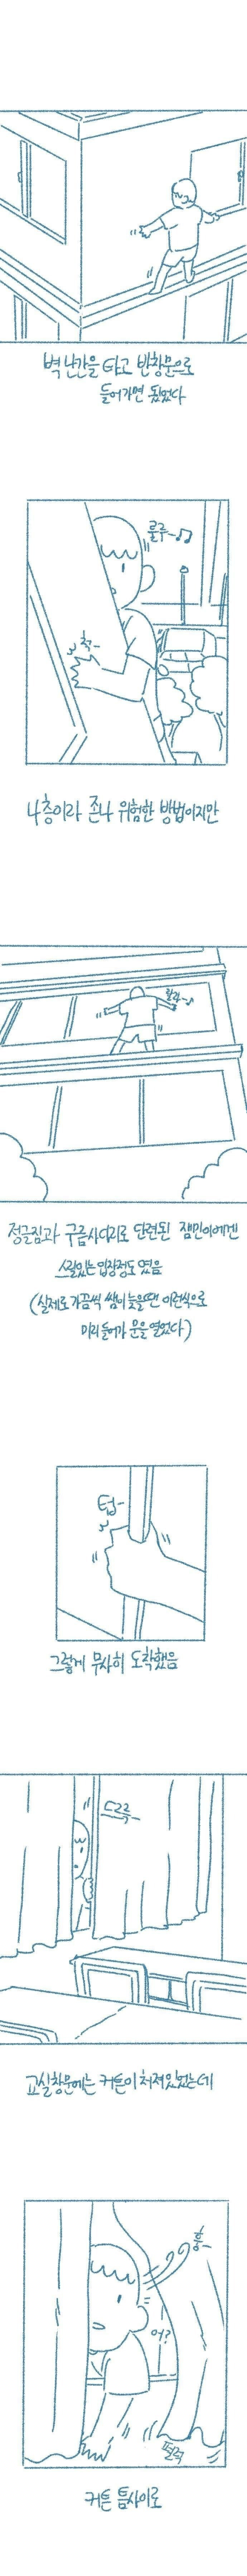 벽 난간을 타고 반창문으로
들어가면 됐었다
룰루~♪♫
척-
4층이라 존나 위험한 방법이지만
랄라~♪
정글짐과 구름사다리로 단련된 잼민이에겐
스릴있는 입장정도 였음
(실제로 가끔씩 쌤이 늦을땐 이런식으로
미리 들어가 문을 열었다)
텁-
그렇게 무사히 도착했음
드르륵-
교실창문에는 커튼이 쳐져있었는데
휭-
어?
펄럭
커튼 틈사이로